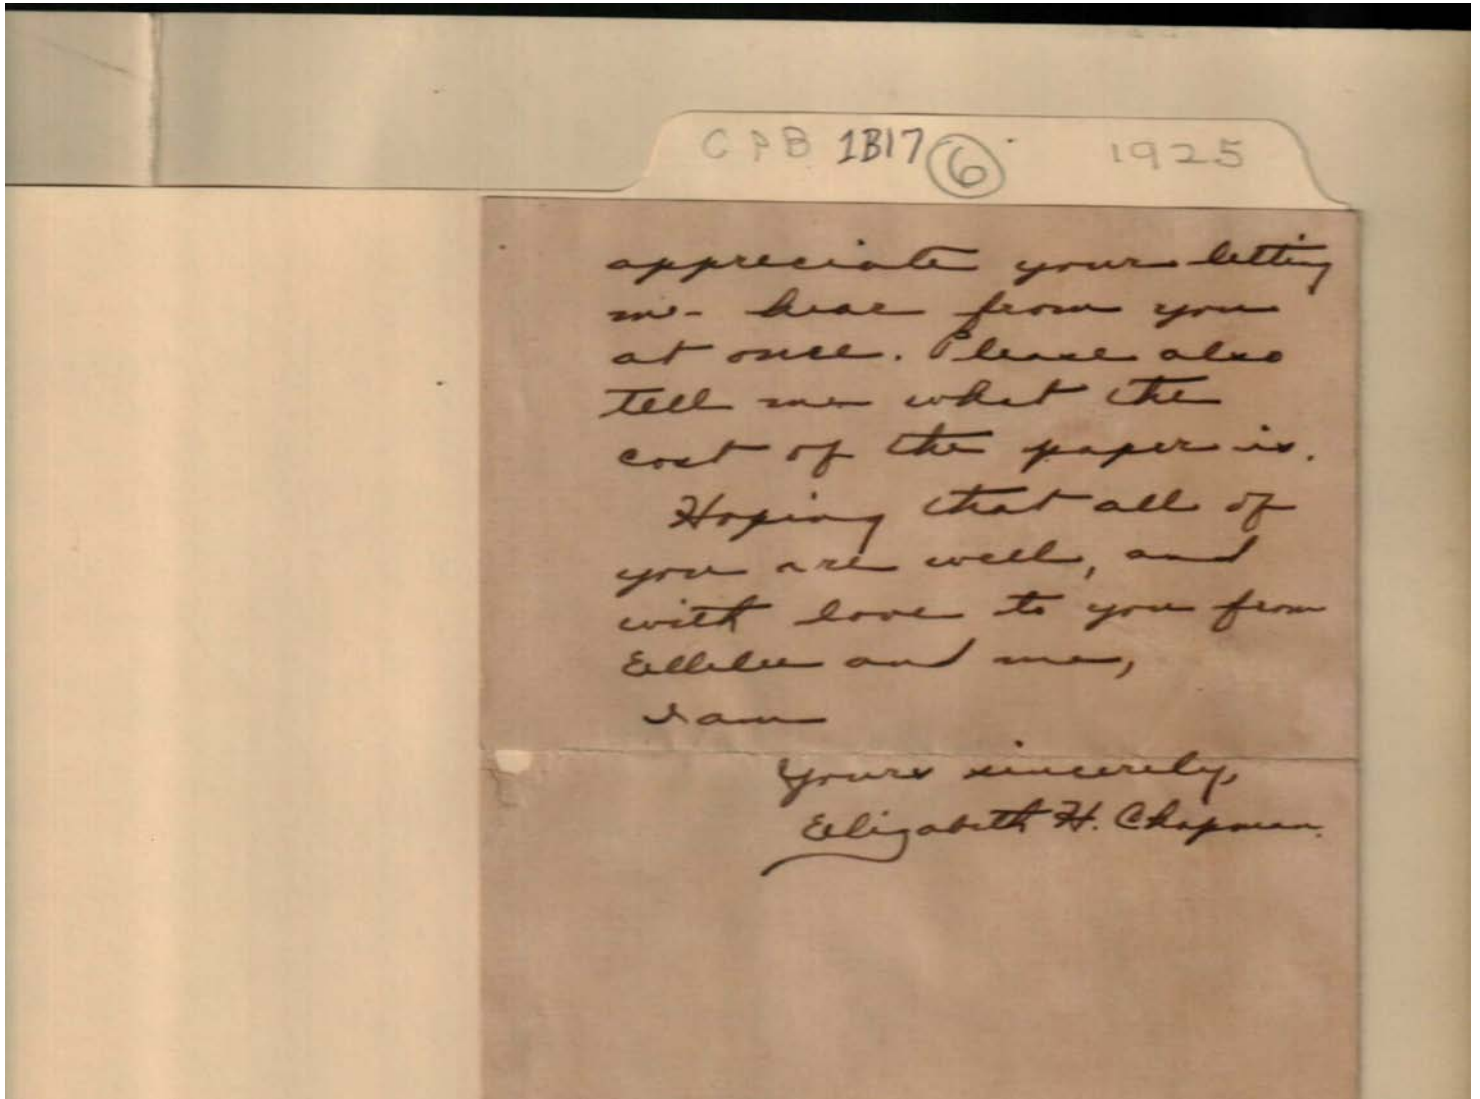 CPB 1B17 6 1925
appreciate your letting
me hear from you
at once. Please also
tell me what the
cost of the paper is.
Hoping that all of
you are well, and
with love to you from
Ellalee and me,
I am
Yours sincerely,
Elizabeth H. Chapman.